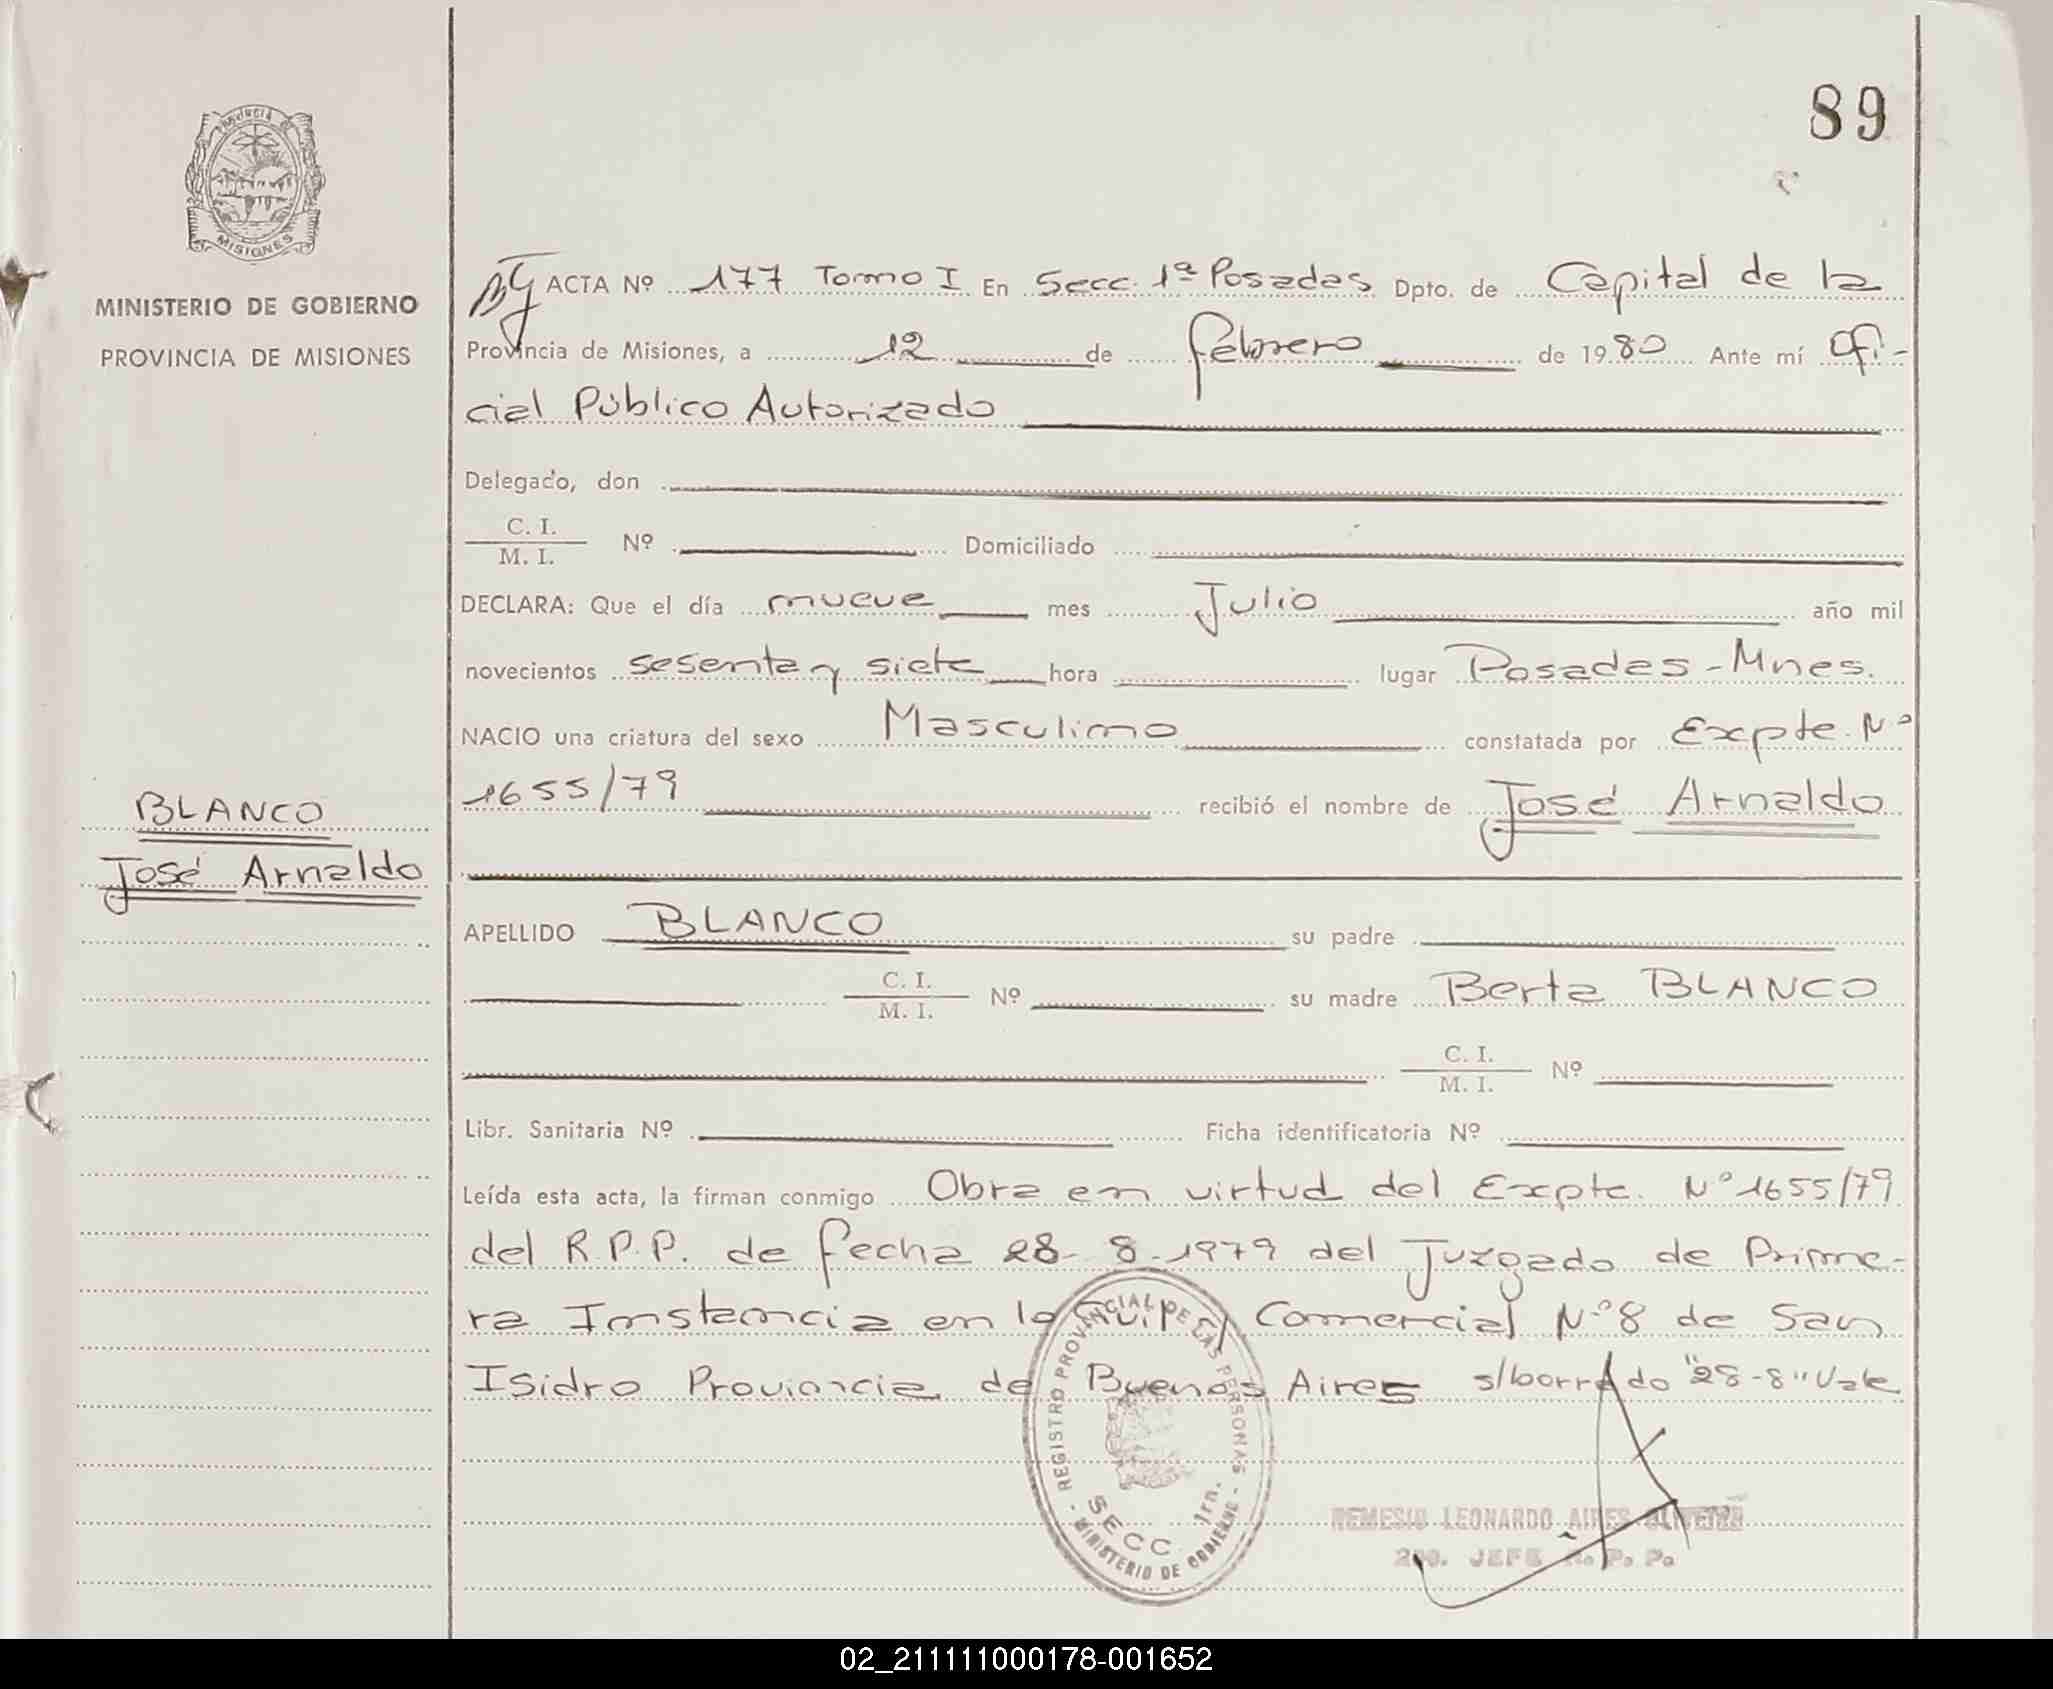 89
Provincia de
MISIONES
MINISTERIO DE GOBIERNO
PROVINCIA DE MISIONES
ACTA Nº 177 Tomo I En Secc. 1ª Posadas Dpto. de Capital de la
Provincia de Misiones, a 12 de febrero de 1980 Ante mí Ofi-
cial Público Autorizado
Delegado, don
C. I.
M. I. Nº Domiciliado
DECLARA: Que el día nueve mes Julio año mil
novecientos sesenta y siete hora lugar Posadas - Mnes.
NACIO una criatura del sexo Masculino constatada por Expte. Nº
1655/79 recibió el nombre de José Arnaldo
BLANCO
José Arnaldo
APELLIDO BLANCO su padre
C. I.
M. I. Nº su madre Berta BLANCO
C. I.
M. I. Nº
Libr. Sanitaria Nº Ficha identificatoria Nº
Leída esta acta, la firman conmigo Obra en virtud del Expte. Nº 1655/79
del R.P.P. de fecha 28-8-1979 del Juzgado de Prime-
ra Instancia en lo Civil y Comercial Nº 8 de San
Isidro Provincia de Buenos Aires s/borrado "28-8" Vale
REGISTRO PROVINCIAL DE LAS PERSONAS
SECC. 1ra.
MINISTERIO DE GOBIERNO
REMESIO LEONARDO AIRES
2do. JEFE R. P. P.
02_211111000178-001652